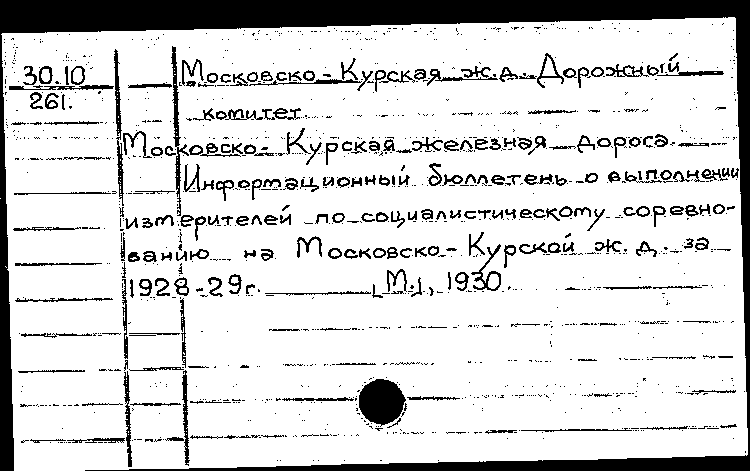 30.10
261.
Московско-Курская ж.д. Дорожный
комитет.
Московско-Курская железная дорога.
Информационный бюллетень о выполнении
измерителей по социалистическому соревно-
ванию на Московско-Курской ж.д. за
1928-29г. [М.], 1930.